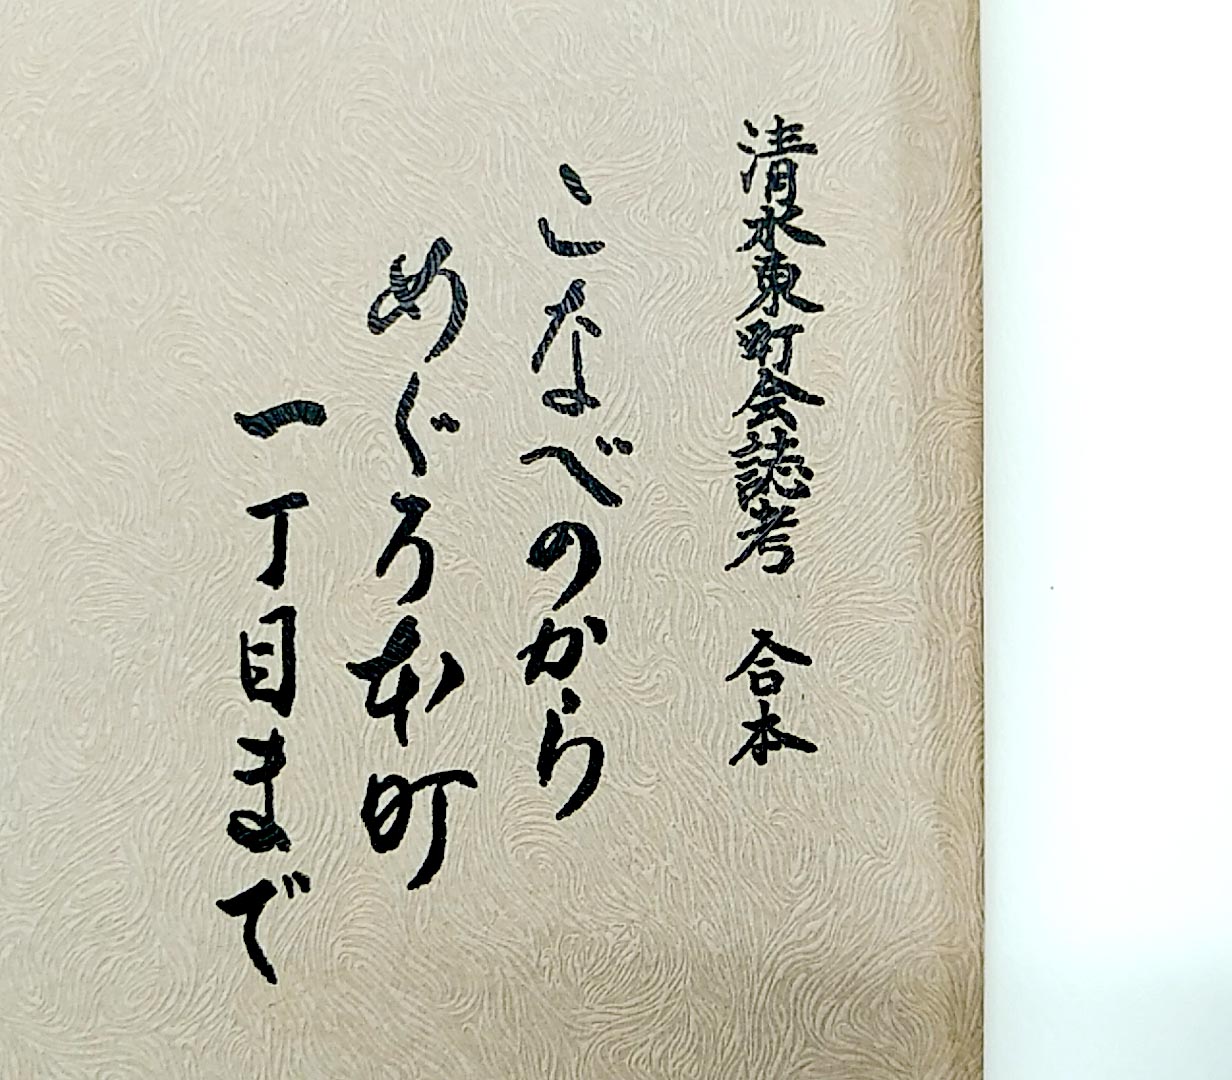 清水東町会誌考　合本
こなべのから
めぐろ本町
一丁目まで